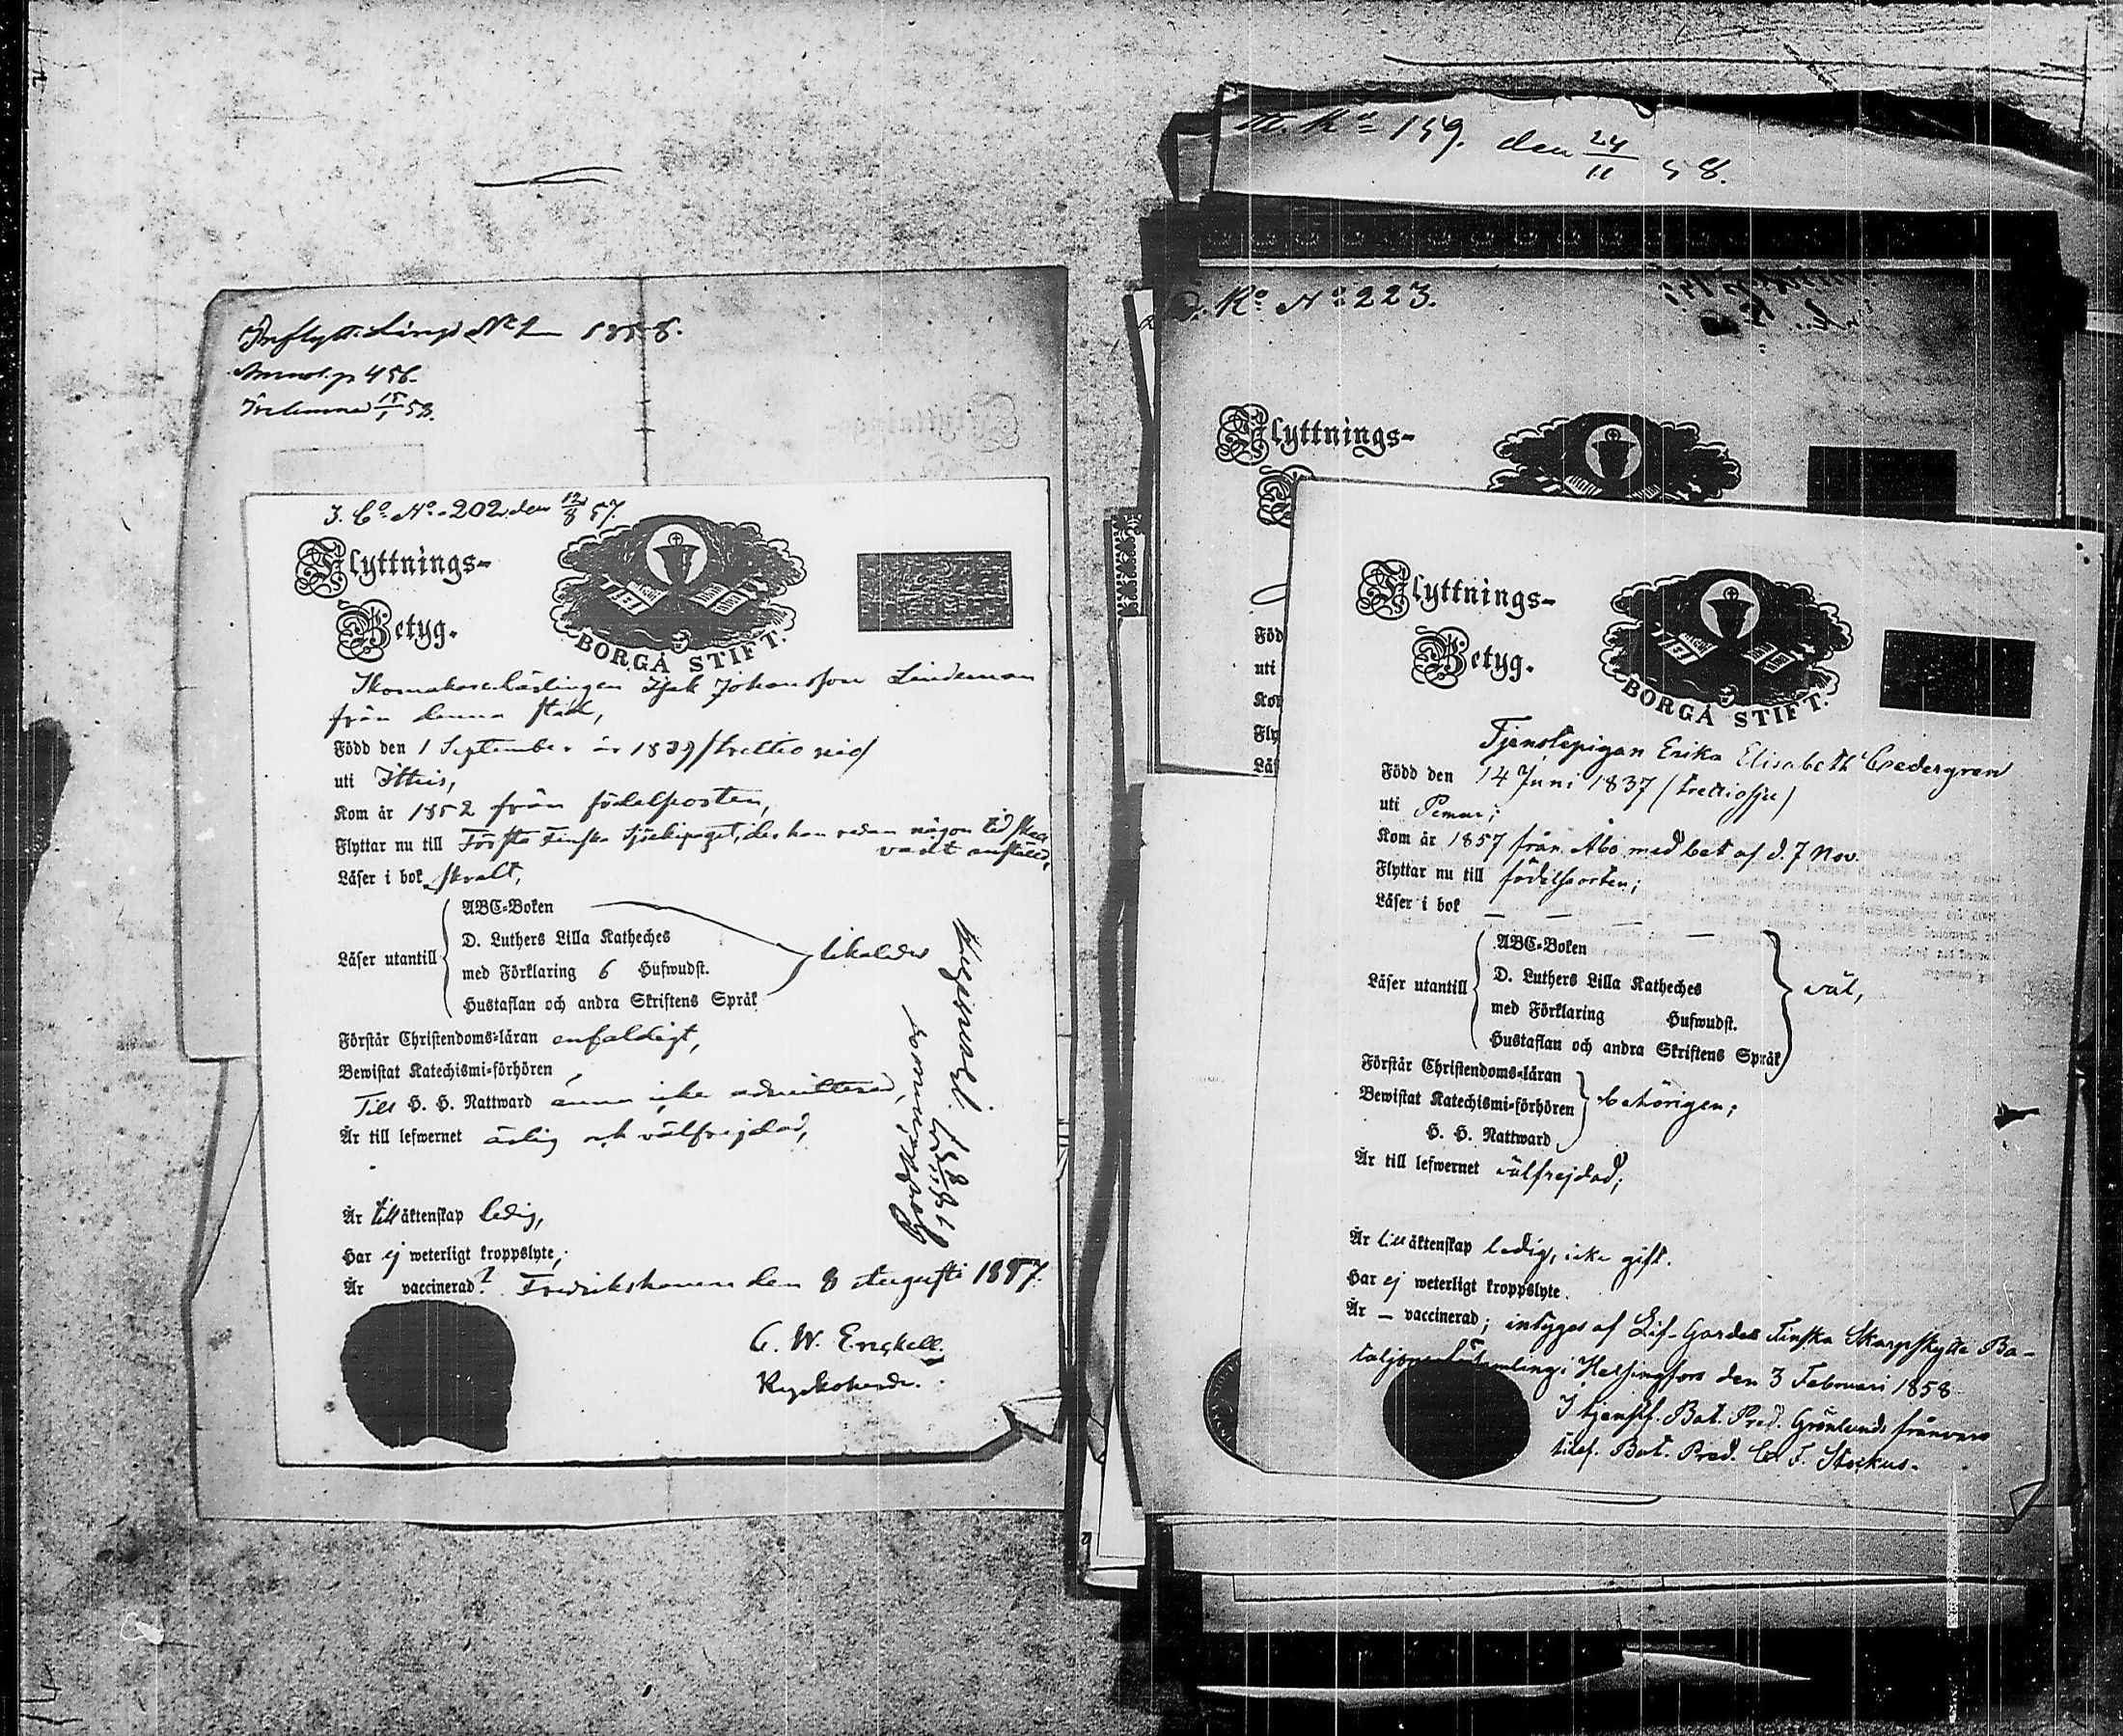 Inflyttn. Längd No 1858.
456.
15/1 58.
I. C. No 202 den 12/8 57.
Flyttnings-
Betyg.
BORGÅ STIFT.
Skomakarelärlingen Isak Johansson Lindeman
från denna stad,
Född den 1 September år 1839 /trettio nio/
uti Ittis,
Kom år 1852 från födelseorten,
Flyttar nu till Första Finska Sjöekipaget, der han redan någon tid skall
varit anstäld,
Läser i bok svalt,
Läser utantill
ABC-Boken
D. Luthers Lilla Katheches
med Förklaring 6 Hufwudst.
Hustaflan och andra Skriftens Språk
likaledes
Förstår Christendoms-läran enfaldigt,
Bewistat Katechismi-förhören
Till H. H. Nattward ännu icke admitterad,
Är till lefwernet ärlig och välfrejdad,
Är till äktenskap ledig,
Har ej weterligt kroppslyte,
Är vaccinerad? Fredrikshamn den 8 Augusti 1857.
C. W. Enckell.
Kyrkoherde.
M. No 159. den 24/11 58.
No 223.
Flyttnings-
Föd
uti
Kom
Fly
Läs
Flyttnings-
Betyg.
BORGÅ STIFT.
Tjenstepigan Erika Elisabeth Cedergren
Född den 14 Juni 1837 (trettiosju)
uti Pemar;
Kom år 1857 från Åbo med bet af d. 7 Nov.
Flyttar nu till födelseorten;
Läser i bok — — — —
Läser utantill
ABC-Boken
D. Luthers Lilla Katheches
med Förklaring Hufwudst.
Hustaflan och andra Skriftens Språk
väl,
Förstår Christendoms-läran
Bewistat Katechismi-förhören
H. H. Nattward
behörigen;
Är till lefwernet välfrejdad;
Är till äktenskap ledig, icke gift.
Har ej weterligt kroppslyte.
Är — vaccinerad; intygas af Lif-Gardes Finska Skarpskytte Ba-
taljons församling i Helsingfors den 3 Februari 1858
I tjenstf. Bat. Pred. Grönlunds frånvaro
tillf. Bat. Pred. C. F. Stockus.